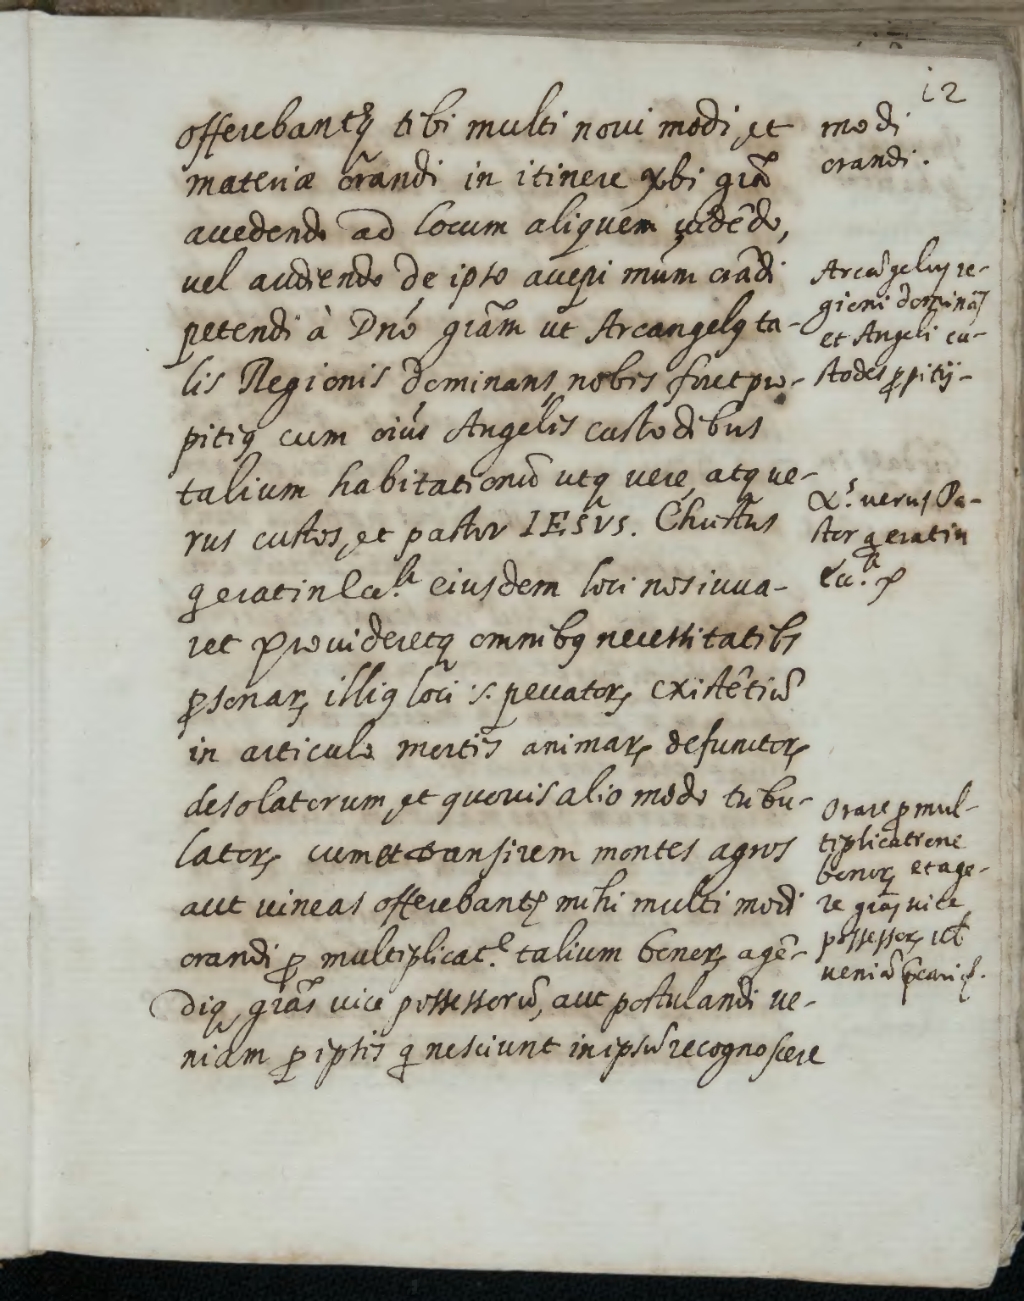 12
offerebantʳ tibi multi noui modi, et
materiæ orãndi in itinere xbi grã
accedendo ad locum aliquem uidẽdo,
uel audiendo de ipso accepi mũm orãdi
petendi à Dnõ grãm ut Arcangelꝰ ta-
lis Regionis dominans, nobis foret pro-
pitiꝰ cum oiũs Angelis custodibus
talium habitationũ utqꝫ uere, atqꝫ ue-
rus custos, et pastor IESVS. Christus
q̃ erat in Ecc.ᵃ eiusdem loci nos iuua-
ret prouideretqꝫ omnibꝰ necessitatibs
ꝑsonarꝝ illiꝰ loci .s. peccatorꝝ existẽtiũ
in articulo mortis animarꝝ defunctorꝝ
desolatorum, et quouis alio modo tribu-
latorꝝ cum et transirem montes agros
aut uineas offerebantʳ mihi multi modi
orandi ꝓ multiplicat.ᵉ talium bonorꝝ agẽ-
diqꝫ grãs uice possessorũ, aut postulandi ue-
niam ꝓ ipsis q̃ nesciunt in ipsũ recognoscere
modi
orandi.
Arcãgelus re-
gioni dominãs
et Angeli cu-
stodes ꝓpitij-
Xˢ. uerus Pa-
stor q̃ erat in
Ecc.ᵃ
Orare ꝓ mul-
tiplicatione
bonorꝝ et age-
re grãs uice
possessorꝝ uel
ueniã p̃cari